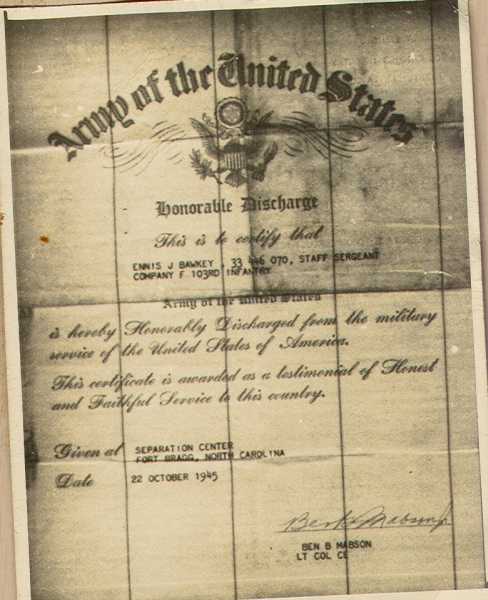 Army of the United States
Honorable Discharge
This is to certify that
ENNIS J BAWKEY, 33 446 070, STAFF SERGEANT
COMPANY F 103RD INFANTRY
Army of the United States
is hereby Honorably Discharged from the military
service of the United States of America.
This certificate is awarded as a testimonial of Honest
and Faithful Service to this country.
Given at SEPARATION CENTER
FORT BRAGG, NORTH CAROLINA
Date 22 OCTOBER 1945
Ben B Mabson
BEN B MABSON
LT COL CE